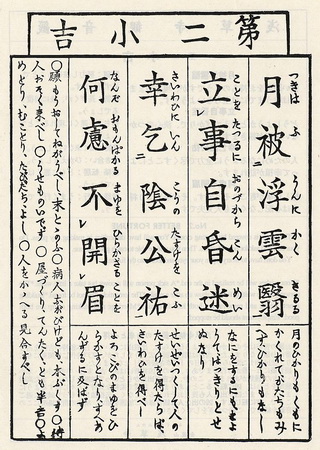 第二小吉
つきは ふ うんに かく さるる
月被浮雲翳
月のひかりもくもに
かくれてかたちもみ
へずひかりもなし
ことを たつるに おのづから こん めい
立レ事自昏迷
なにをするにもせよ
ぬなり
さいわひに いん こうの たすけを こふ
幸乞二陰公祐
たすけを得たらば、
さいわひを得べし
なんぞ おもんばかる まゆを ひらかざる ことを
何慮不レ開レ眉
よろこびのまゆをひ
らかすとなり、すへあ
んずるに及ばず
〇願もうおしてねがうべし、末とゝのふ〇病人ながびけども、本ぶくす〇待
人おそく来べし〇うせものいでず〇屋づくり、てんたく、とも半吉〇よ
めとり、むことり、たびだちよし〇人をかゝへる見合すべし